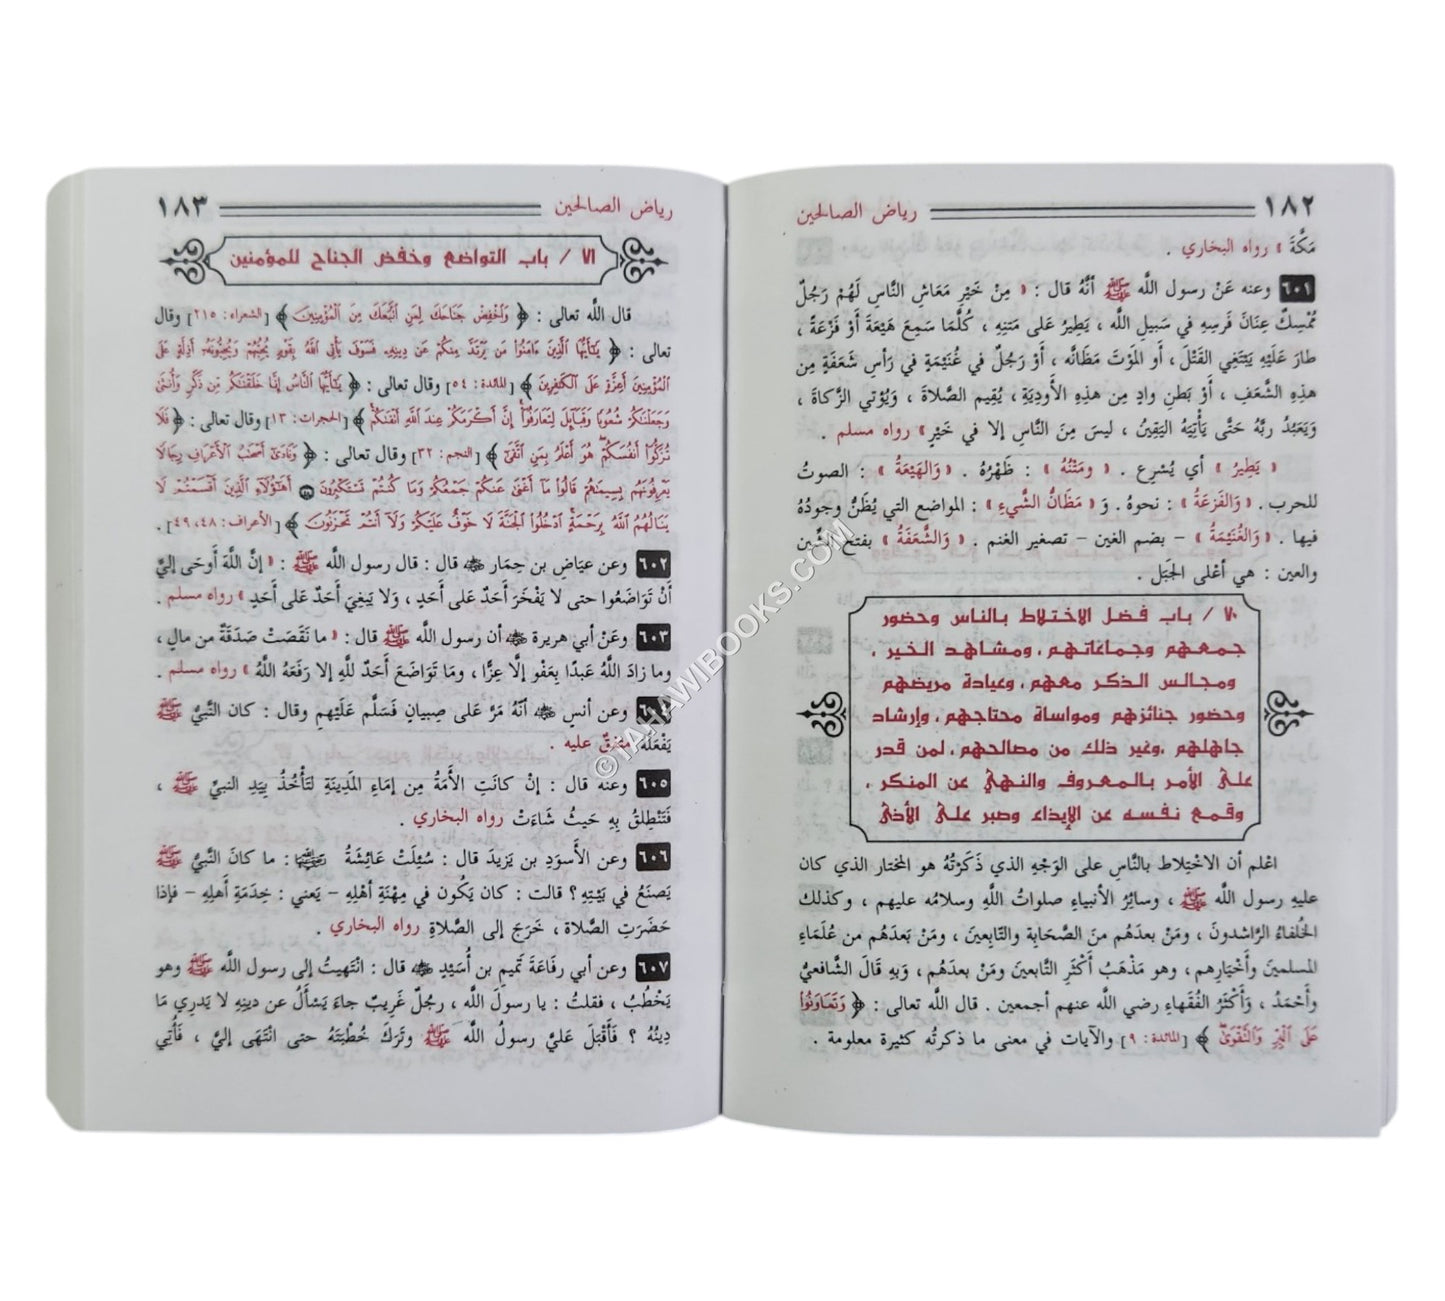 ١٨٢ رياض الصالحين
مَكَّةَ » رواه البخاري .
٦٠١ وعنه عَنْ رسول اللَّه ﷺ أنَّهُ قال : « مِنْ خَيْرِ مَعَاشِ النَّاسِ لَهُمْ رَجُلٌ
مُمْسِكٌ عِنَانَ فَرَسِهِ في سَبيلِ اللَّه ، يَطيرُ عَلى مَتنِهِ ، كُلَّمَا سَمِعَ هَيْعَةَ أوْ فَزْعَةً ،
طارَ عَلَيْهِ يَبْتَغِي القَتْلَ ، أو المَوْتَ مَظَانَّه ، أوْ رَجُلٌ في غُنَيْمَةٍ في رَأسِ شَعَفَةٍ مِن
هذِهِ الشَّعَفِ ، أوْ بَطنِ وادٍ مِن هذِهِ الأَودِيَةِ ، يُقِيم الصَّلاةَ ، وَيُؤْتي الزَّكاةَ ،
وَيَعْبُدُ ربَّهُ حَتَّى يَأْتِيَهُ اليَقِينُ ، ليسَ مِنَ النَّاسِ إلا في خَيْرٍ» رواه مسلم .
« يَطِيرُ » أي يُسْرِع . « ومَتْنُهُ » : ظَهْرُهُ . « وَالهَيْعَةُ » : الصوتُ
للحرب . « وَالفَزعَةُ » : نحوهُ . وَ « مَظَانُّ الشَّيءِ » : المواضع التي يُظَنُّ وجودُهُ
فيها . « وَالغُنَيْمَةُ » – بضم الغين – تصغير الغنم . « وَالشَّعَفَةُ » بفتح الشِّين
والعين : هي أعْلى الجَبَل .
٧٠ / باب فضل الاختلاط بالناس وحضور
جمعهم وجماعاتهم، ومشاهد الخير ،
ومجالس الذكر معهم، وعيادة مريضهم
وحضور جنائزهم ومواساة محتاجهم، وإرشاد
جاهلهم ،وغير ذلك من مصالحهم، لمن قدر
على الأمر بالمعروف والنهي عن المنكر ،
وقمع نفسه عن الإيذاء وصبر على الأذى
اعْلم أن الاخْتِلاط بالنَّاسِ على الوَجْهِ الذي ذَكَرْتُهُ هو المختار الذي كان
عليهِ رسول اللَّه ﷺ ، وسائِرُ الأنبياءِ صلواتُ اللَّهِ وسلامُه عليهم ، وكذلك
الخُلفاءُ الرَّاشدونَ ، ومَنْ بعدَهُم منَ الصَّحَابة والتَّابِعينَ ، ومَنْ بَعدَهُم من عُلَمَاءِ
المسلمينَ وأخْيَارِهم ، وهو مَذْهَبُ أكْثَرِ التَّابعينَ ومَنْ بعدَهُم ، وَبِهِ قَالَ الشَّافعيُّ
وأَحْمَدُ ، وَأكْثَرُ الفُقَهاءِ رضي اللَّه عنهم أجمعين . قال اللَّه تعالى : ﴿ وَتَعَاوَنُوا۟
عَلَى ٱلْبِرِّ وَٱلتَّقْوَىٰ ﴾ [المائدة: ٩] والآيات في معنى ما ذكرتُه كثيرة معلومة .
رياض الصالحين ١٨٣
٧١ / باب التواضع وخفض الجناح للمؤمنين
قال اللَّه تعالى : ﴿ وَٱخْفِضْ جَنَاحَكَ لِمَنِ ٱتَّبَعَكَ مِنَ ٱلْمُؤْمِنِينَ ﴾ [الشعراء: ٢١٥] وقال
تعالى : ﴿ يَٰٓأَيُّهَا ٱلَّذِينَ ءَامَنُوا۟ مَن يَرْتَدَّ مِنكُمْ عَن دِينِهِۦ فَسَوْفَ يَأْتِى ٱللَّهُ بِقَوْمٍ يُحِبُّهُمْ وَيُحِبُّونَهُۥٓ أَذِلَّةٍ عَلَى
ٱلْمُؤْمِنِينَ أَعِزَّةٍ عَلَى ٱلْكَٰفِرِينَ ﴾ [المائدة: ٥٤] وقال تعالى : ﴿ يَٰٓأَيُّهَا ٱلنَّاسُ إِنَّا خَلَقْنَٰكُم مِّن ذَكَرٍ وَأُنثَىٰ
وَجَعَلْنَٰكُمْ شُعُوبًا وَقَبَآئِلَ لِتَعَارَفُوٓا۟ إِنَّ أَكْرَمَكُمْ عِندَ ٱللَّهِ أَتْقَىٰكُمْ ﴾ [الحجرات: ١٣] وقال تعالى : ﴿ فَلَا
تُزَكُّوٓا۟ أَنفُسَكُمْ هُوَ أَعْلَمُ بِمَنِ ٱتَّقَىٰٓ ﴾ [النجم: ٣٢] وقال تعالى : ﴿ وَنَادَىٰٓ أَصْحَٰبُ ٱلْأَعْرَافِ رِجَالًا
يَعْرِفُونَهُم بِسِيمَىٰهُمْ قَالُوا۟ مَآ أَغْنَىٰ عَنكُمْ جَمْعُكُمْ وَمَا كُنتُمْ تَسْتَكْبِرُونَ ٤٨ أَهَٰٓؤُلَآءِ ٱلَّذِينَ أَقْسَمْتُمْ لَا
يَنَالُهُمُ ٱللَّهُ بِرَحْمَةٍ ٱدْخُلُوا۟ ٱلْجَنَّةَ لَا خَوْفٌ عَلَيْكُمْ وَلَآ أَنتُمْ تَحْزَنُونَ ﴾ [الأعراف: ٤٨، ٤٩] .
٦٠٢ وعن عيَاضِ بن حِمَار ﷺ قال : قال رسول اللَّه ﷺ : « إنَّ اللَّهَ أوحَى إليَّ
أنْ تَوَاضَعُوا حتى لا يَفْخَرَ أَحَدٌ عَلى أَحَدٍ ، وَلا يَبغِيَ أَحَدٌ عَلى أَحَدٍ » رواه مسلم .
٦٠٣ وعَنْ أبي هريرة أن رسول اللَّه ﷺ قال : « ما نَقَصَتْ صَدَقَةٌ من مالٍ ،
وما زادَ اللَّهُ عَبدًا بِعَفوٍ إلا عِزًّا ، ومَا تَوَاضَعَ أَحَدٌ للهِ إلا رَفَعَهُ اللَّهُ » رواه مسلم .
٦٠٤ وعن أنسٍ أنَّهُ مَرَّ عَلى صِبيانٍ فَسَلَّم عَلَيْهِم وقال : كان النَّبيُّ ﷺ
يَفْعَلُهُ متفقٌ عليه .
٦٠٥ وعنه قال : إنْ كانَتِ الأَمَةُ مِن إمَاءِ المَدِينَةِ لتَأْخُذُ بِيَدِ النبيِّ ﷺ ،
فَتَنْطلِقُ بِهِ حَيثُ شَاءَتْ رواه البخاري .
٦٠٦ وعن الأسوَدِ بن يَزيدَ قال : سُئِلَتْ عَائِشَةُ : ما كانَ النَّبيُّ ﷺ
يَصنَعُ في بَيْتِهِ ؟ قالت : كان يَكُون في مِهْنَةِ أهْلِهِ – يَعني : خِدمَةِ أهلِهِ – فإذا
حَضَرَتِ الصَّلاة ، خَرَجَ إلى الصَّلاةِ رواه البخاري .
٦٠٧ وعن أبي رفَاعَةَ تَميمِ بن أُسَيْدٍ قال : انْتَهيتُ إلى رسول اللَّه ﷺ وهو
يَخْطُبُ ، فقلتُ : يا رسولَ اللَّه ، رجُلٌ غَرِيبٌ جاءَ يَسْألُ عن دينِهِ لا يَدرِي مَا
دِينُهُ ؟ فَأَقْبَلَ عَليَّ رسولُ اللَّه ﷺ وتَركَ خُطْبَتَهُ حتى انْتَهَى إليَّ ، فَأُتِي
© TAHAWIBOOKS.COM